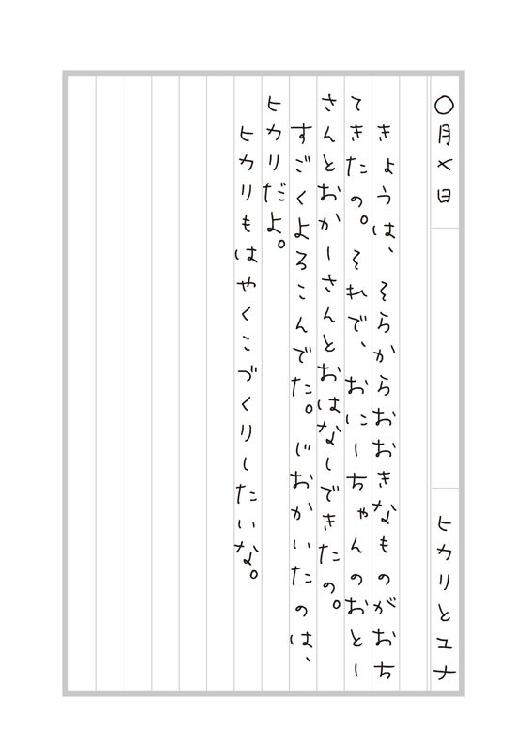 〇月×日
ヒカリとユナ
きょうは、そらからおおきなものがおち
てきたの。それで、おにーちゃんのおとー
さんとおかーさんとおはなしできたの。
すごくよろこんでた。じおかいたのは、
ヒカリだよ。
ヒカリもはやくこづくりしたいな。